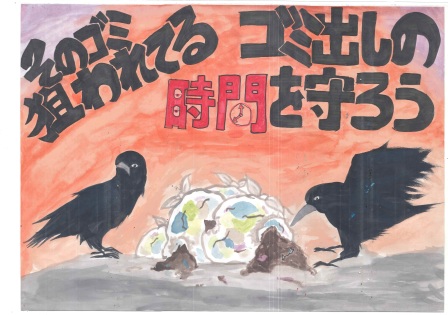 そのゴミ
狙われてる
ゴミ出しの
時間を守ろう